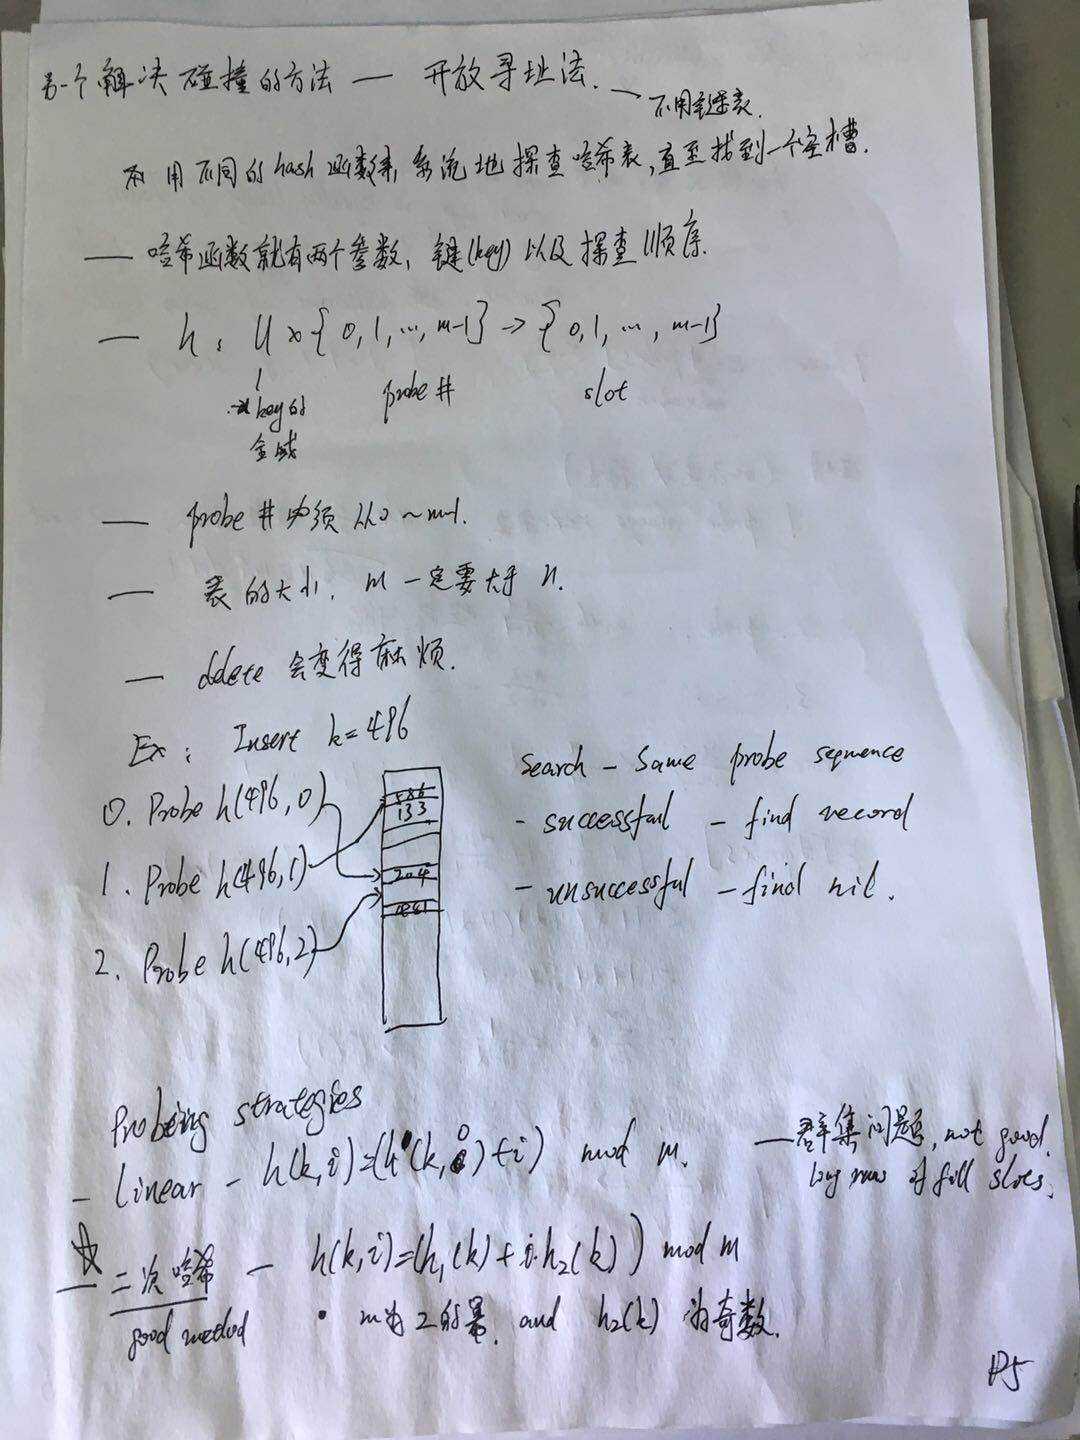 另一个解决碰撞的方法 — 开放寻址法.
→ 不用链表.
用不同的hash函数来, 系统地探查哈希表, 直至找到一个空槽.
— 哈希函数就有两个参数, 键(key) 以及探查顺序.
— h: U × { 0, 1, ..., m-1} → { 0, 1, ..., m-1}
key的全域 probe # slot
— probe # 必须从0 ~ m-1.
— 表的大小, m 一定要大于 n.
— delete 会变得麻烦.
Ex: Insert k=496
0. Probe h(496, 0)
1. Probe h(496, 1)
2. Probe h(496, 2)
586
133
204
481
Search — Same probe sequence
- successful — find record
- unsuccessful — find nil.
Probing strategies
- linear — h(k, i)=(h(k, 0)+i) mod m.
— 群集问题, not good.
long runs of full slots.
☆ — 二次哈希 — h(k, i)=(h₁(k)+i·h₂(k)) mod m
good method
• m为2的幂, and h₂(k) 为奇数.
P5